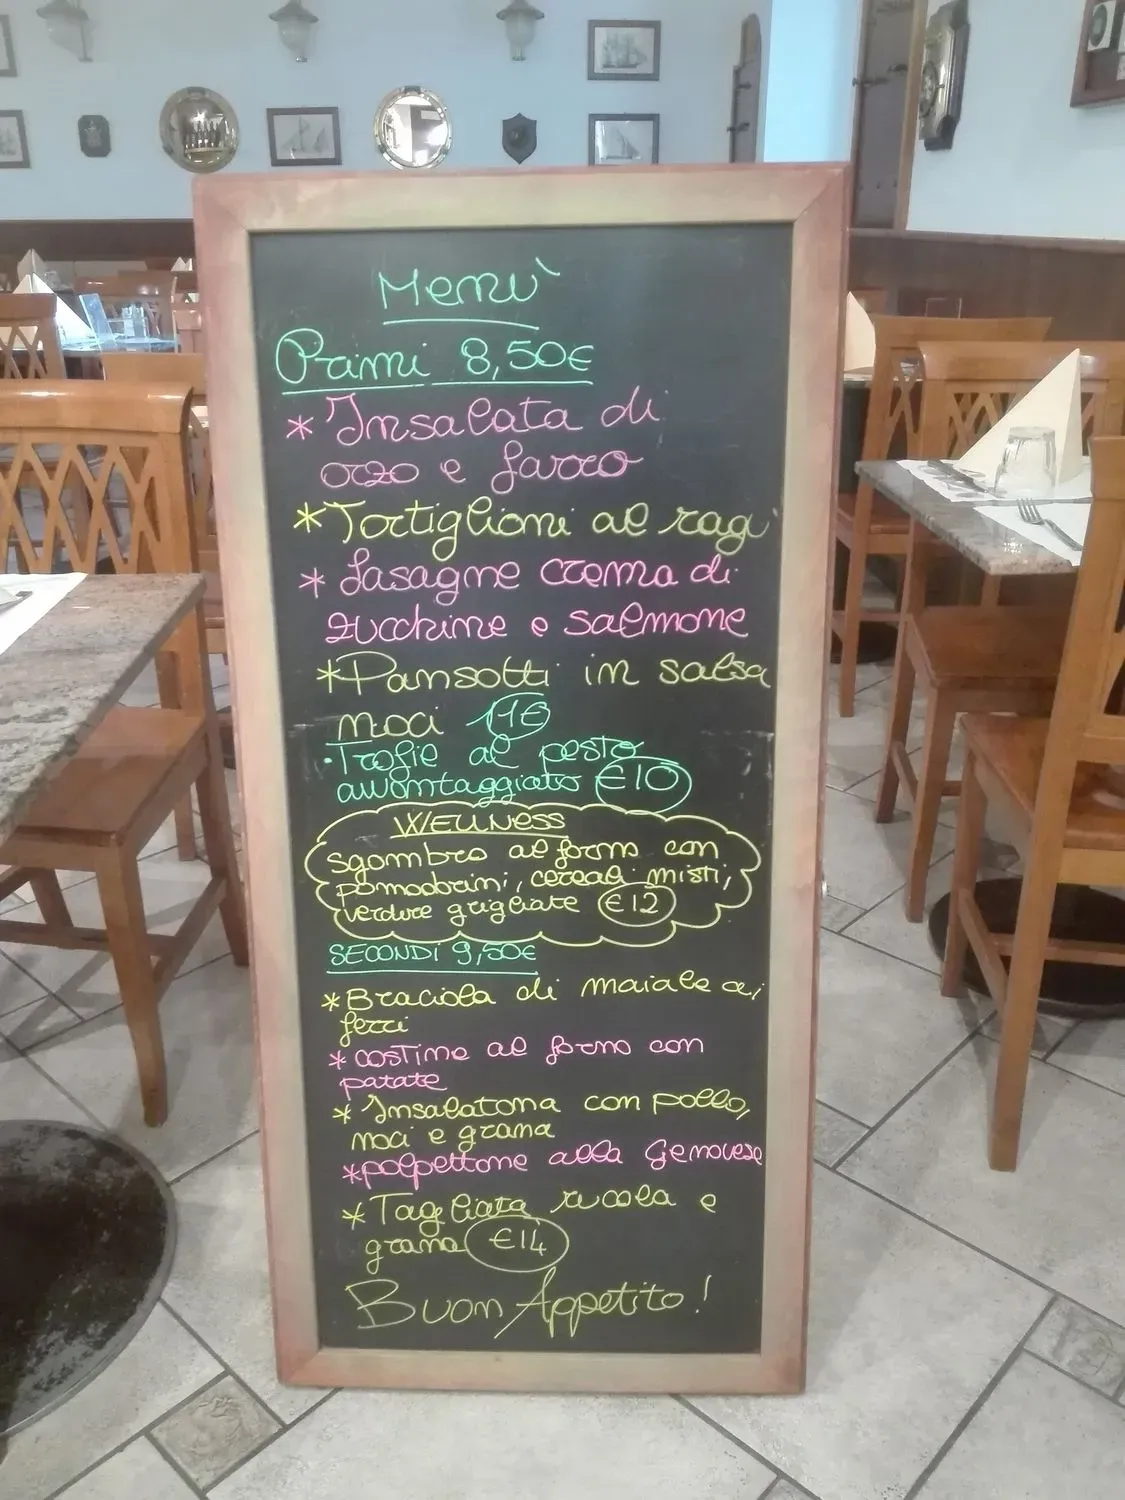 Menù
Primi 8,50€
* Insalata di
orzo e farro
* Tortiglioni al ragù
* Lasagne crema di
zucchine e salmone
* Pansotti in salsa
noci 11€
· Trofie al pesto
avvantaggiato €10
WELLNESS
sgombro al forno con
pomodorini, cereali misti,
verdure grigliate €12
SECONDI 9,50€
* Braciola di maiale ai
ferri
* costine al forno con
patate
* Insalatona con pollo,
noci e grana
* polpettone alla Genovese
* Tagliata rucola e
grana €14
Buon Appetito!